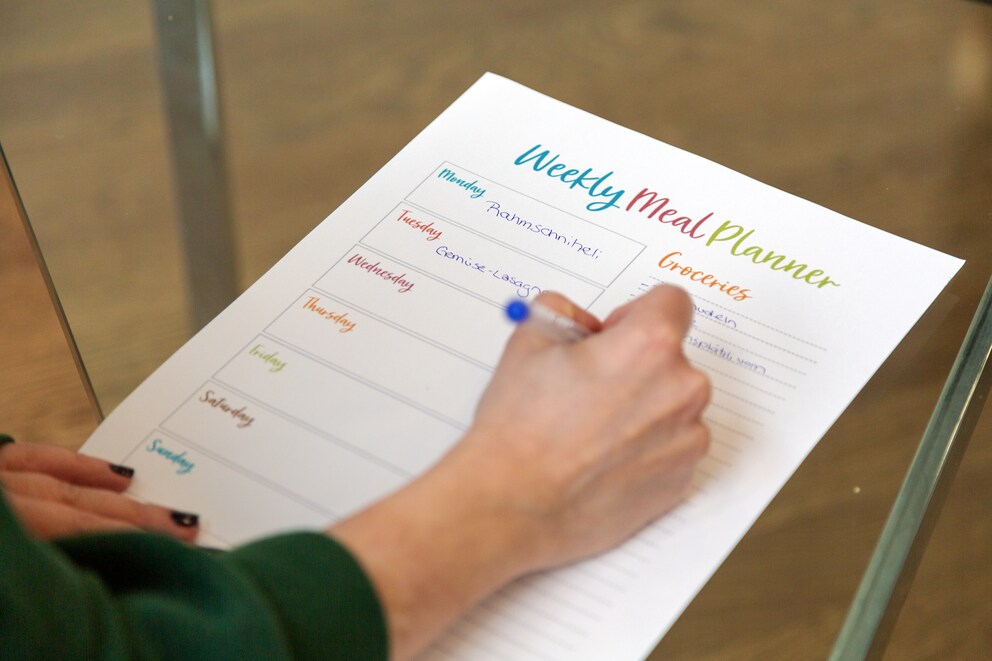 Weekly Meal Planner
Monday
Rahmschnitzeli
Tuesday
Gemüse-Lasagn
Wednesday
Thursday
Friday
Saturday
Sunday
Groceries